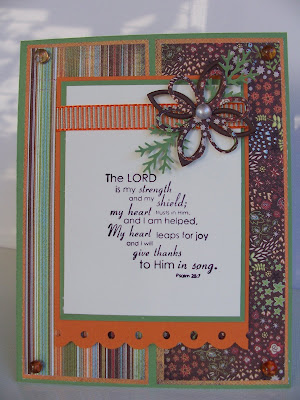 The LORD
is my strength
and my
shield;
my heart trusts in Him,
and I am helped.
My heart leaps for joy
and I will
give thanks
to Him in song.
Psalm 28:7